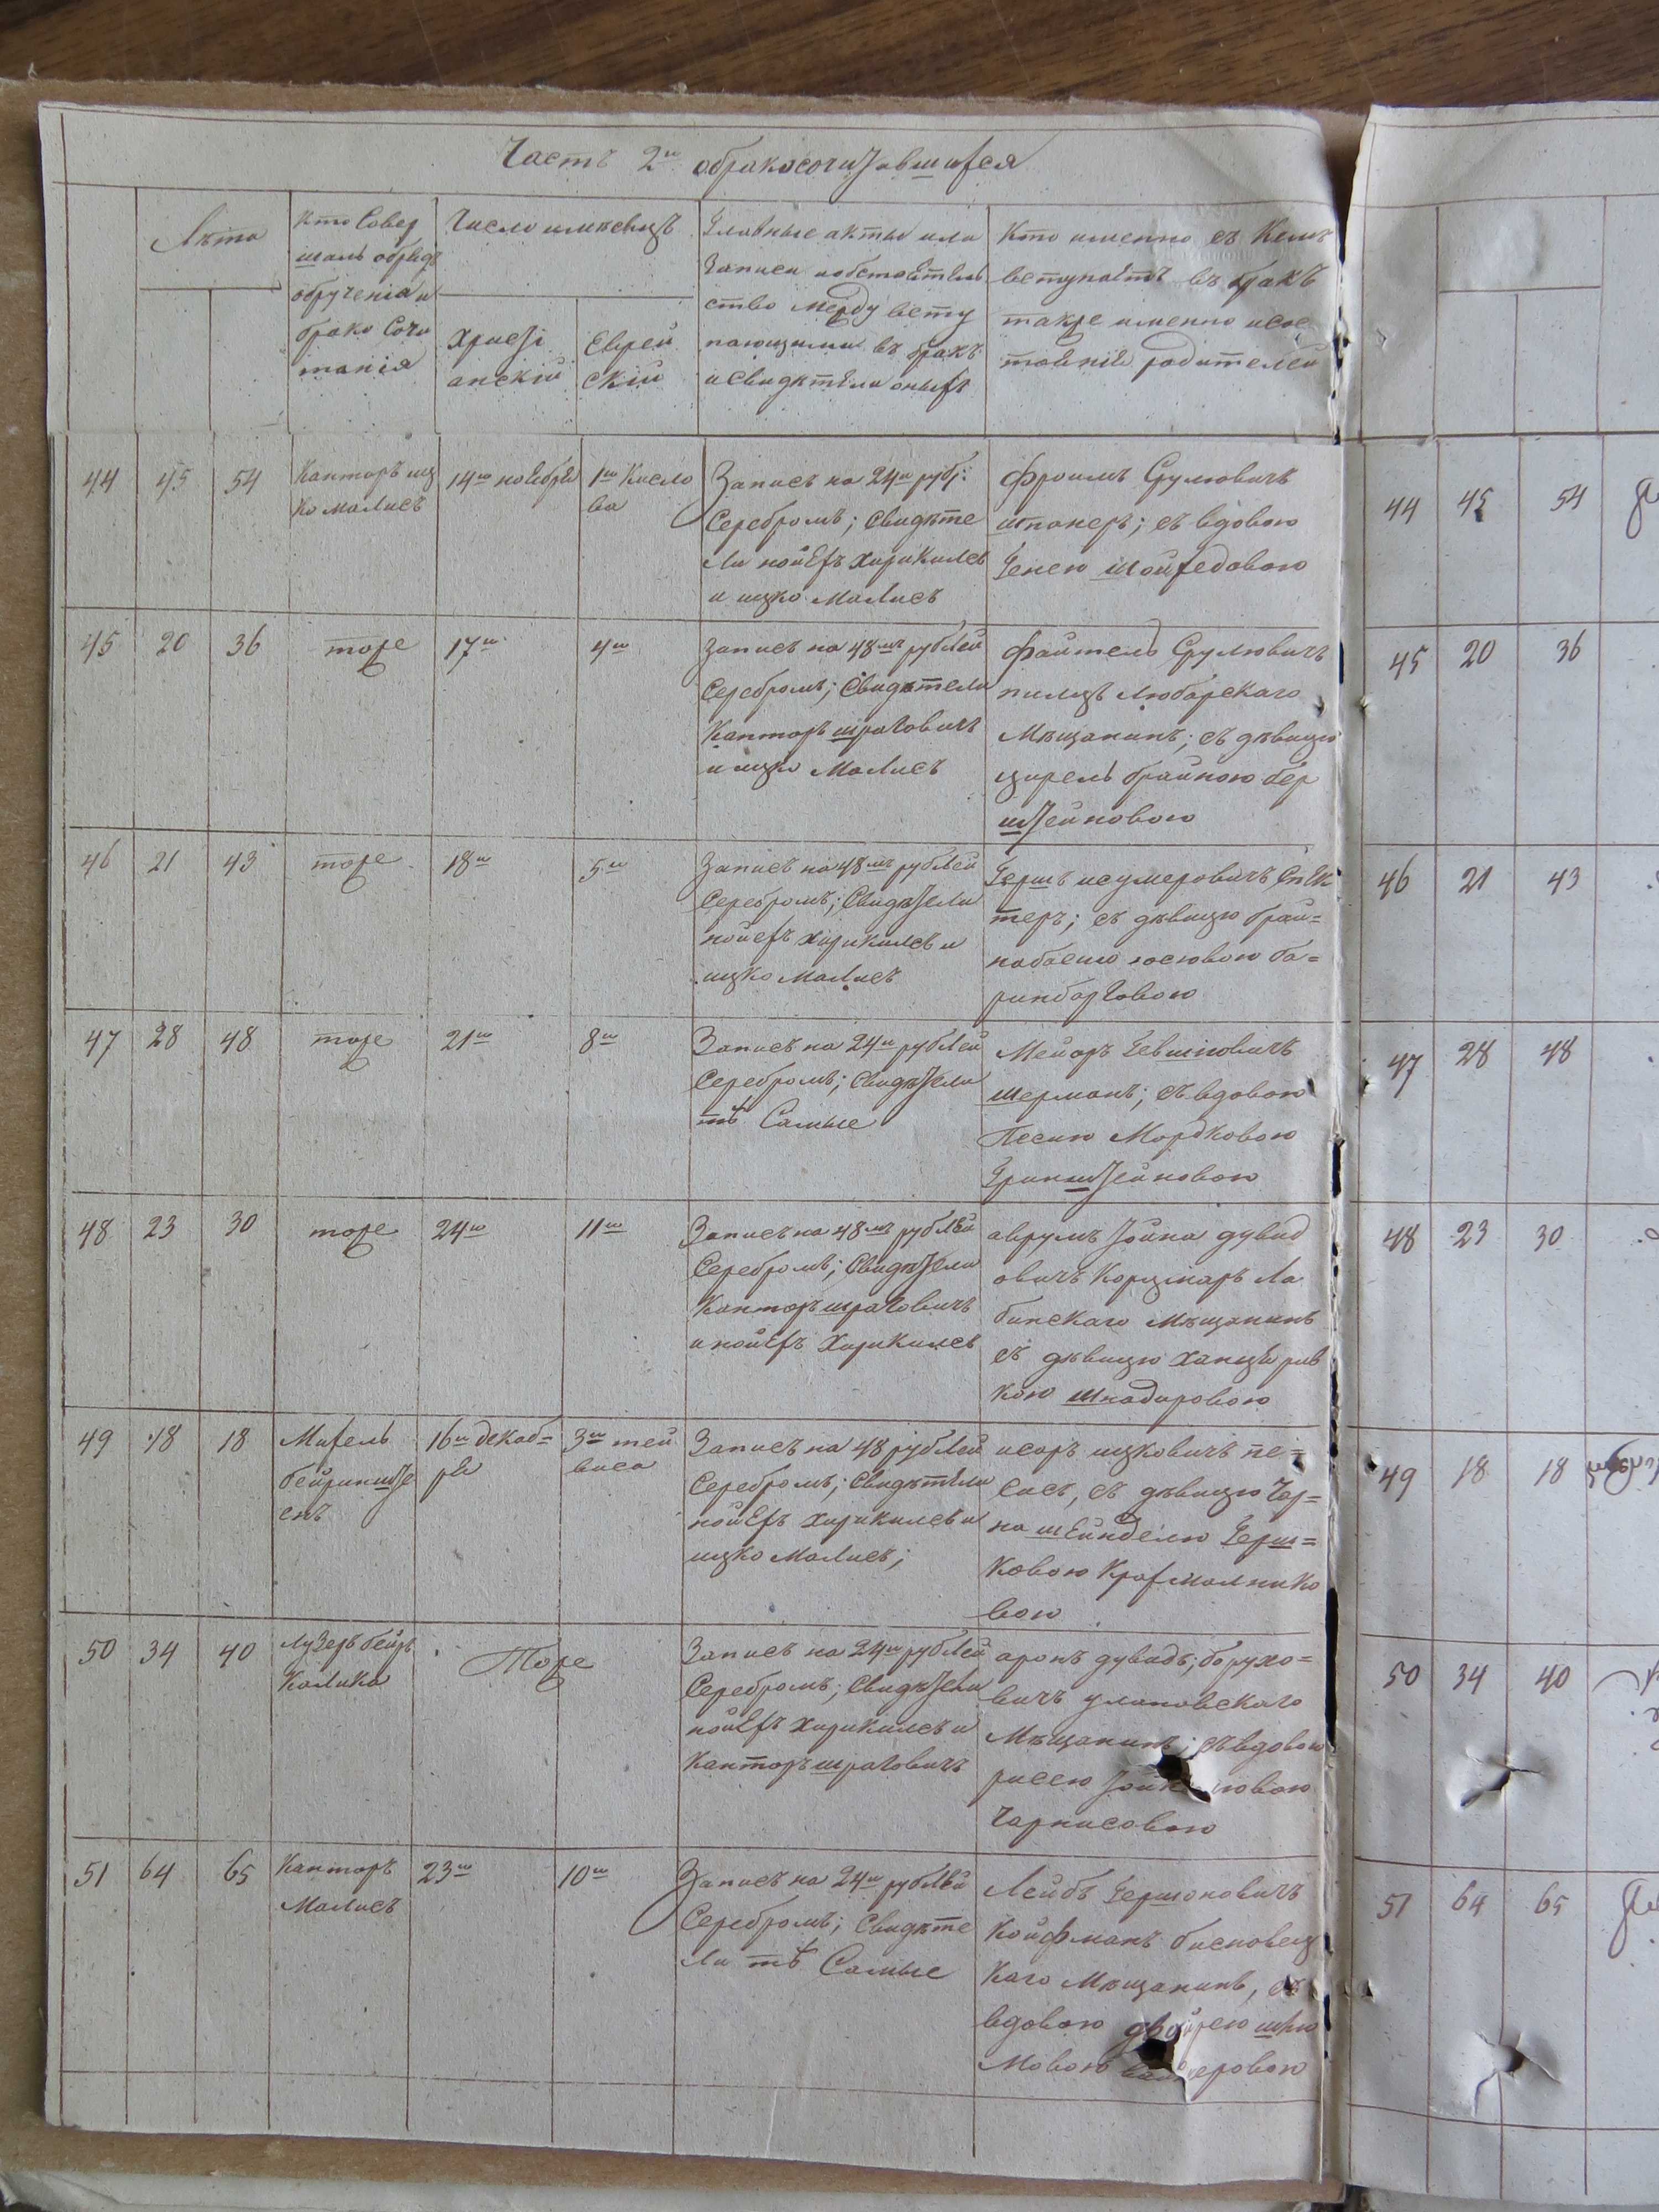 Часть 2я обракосочитавшихся
Лѣта
Кто Совер
шалъ обрядъ
обрученія и
брако Сочи
танія
Число и мѣсяцъ
Христі
анскій
Еврей
скій
Главные акты или
Записи и обстоятель
ство между всту
пающими въ бракъ
и Свидѣтели оныхъ
Кто именно съ Кемъ
вступаетъ въ бракъ
также именно и сос
тояніе родителей
44 45 54
Канторъ иц
ко малисъ
14го ноября
1го Кисло
ва
Запись на 24и рубл:
Серебромъ; Свидѣте
ли нойехъ хирикилсъ
и ицко Малисъ
Фроимъ Срулювичъ
шпанеръ; съ вдовою
Генею Шойхедовою
45 20 36
тоже
17го
4го
Запись на 48мъ рублей
Серебромъ; Свидѣтели
Канторъ шраговичъ
и ицко Малисъ
Файтель Срулювичъ
пилцъ Любарскаго
Мѣщанинъ; съ дѣвицю
цирель брайною бер
штейновою
46 21 43
тоже
18го
5го
Запись на 48мъ рублей
Серебромъ; Свидѣтели
нойехъ хирикилсъ и
ицко Малисъ
Гершъ исумеровичъ Спек
теръ; съ дѣвицю брай=
набасию иосювою ба=
ринборговою
47 28 48
тоже
21го
8го
Запись на 24и рублей
Серебромъ; Свидѣтели
тѣ Самые
Мейоръ Гевшиовичъ
шерманъ; съ вдовою
Песию Мордковою
Гринштейновою
48 23 30
тоже
24го
11го
Запись на 48мъ рублей
Серебромъ; Свидѣтели
Канторъ шраговичъ
и нойехъ Хирикилсъ
аврумъ Тойна дувид
овичъ Корцмаръ Ла
бунскаго Мѣщанинъ
съ дѣвицю Ханцѣ рив
кою Шнадировою
49 18 18
Михель
бейринште
енъ
16го декаб=
ря
3го тей
виса
Запись на 48 рублей
Серебромъ; Свидѣтели
нойехъ хирикилсъ и
ицко Малисъ;
исоръ ицковичъ пе=
сисъ, съ дѣвицю Чар=
на шейнделю Герш=
ковою Крахмалнико
вою
50 34 40
Лузеръ бейръ
Калика
Тоже
Запись на 24и рублей
Серебромъ; Свидѣтели
нойехъ хирикилсъ и
Канторъ шраговичъ
аронъ дувидъ; борухо=
вичъ улановскаго
Мѣщанинъ; съ вдовою
рисею
Чарнисовою
51 64 65
Канторъ
Малисъ
23го
10го
Запись на 24и рублей
Серебромъ; Свидѣте
ли тѣ Самые
Лейбъ Гершоновичъ
Койфманъ бисновец
Каго Мѣщанинъ, съ
вдовою двойрею шлю
Мовою
44 45 54
45 20 36
46 21 43
47 28 48
48 23 30
49 18 18
50 34 40
51 64 65